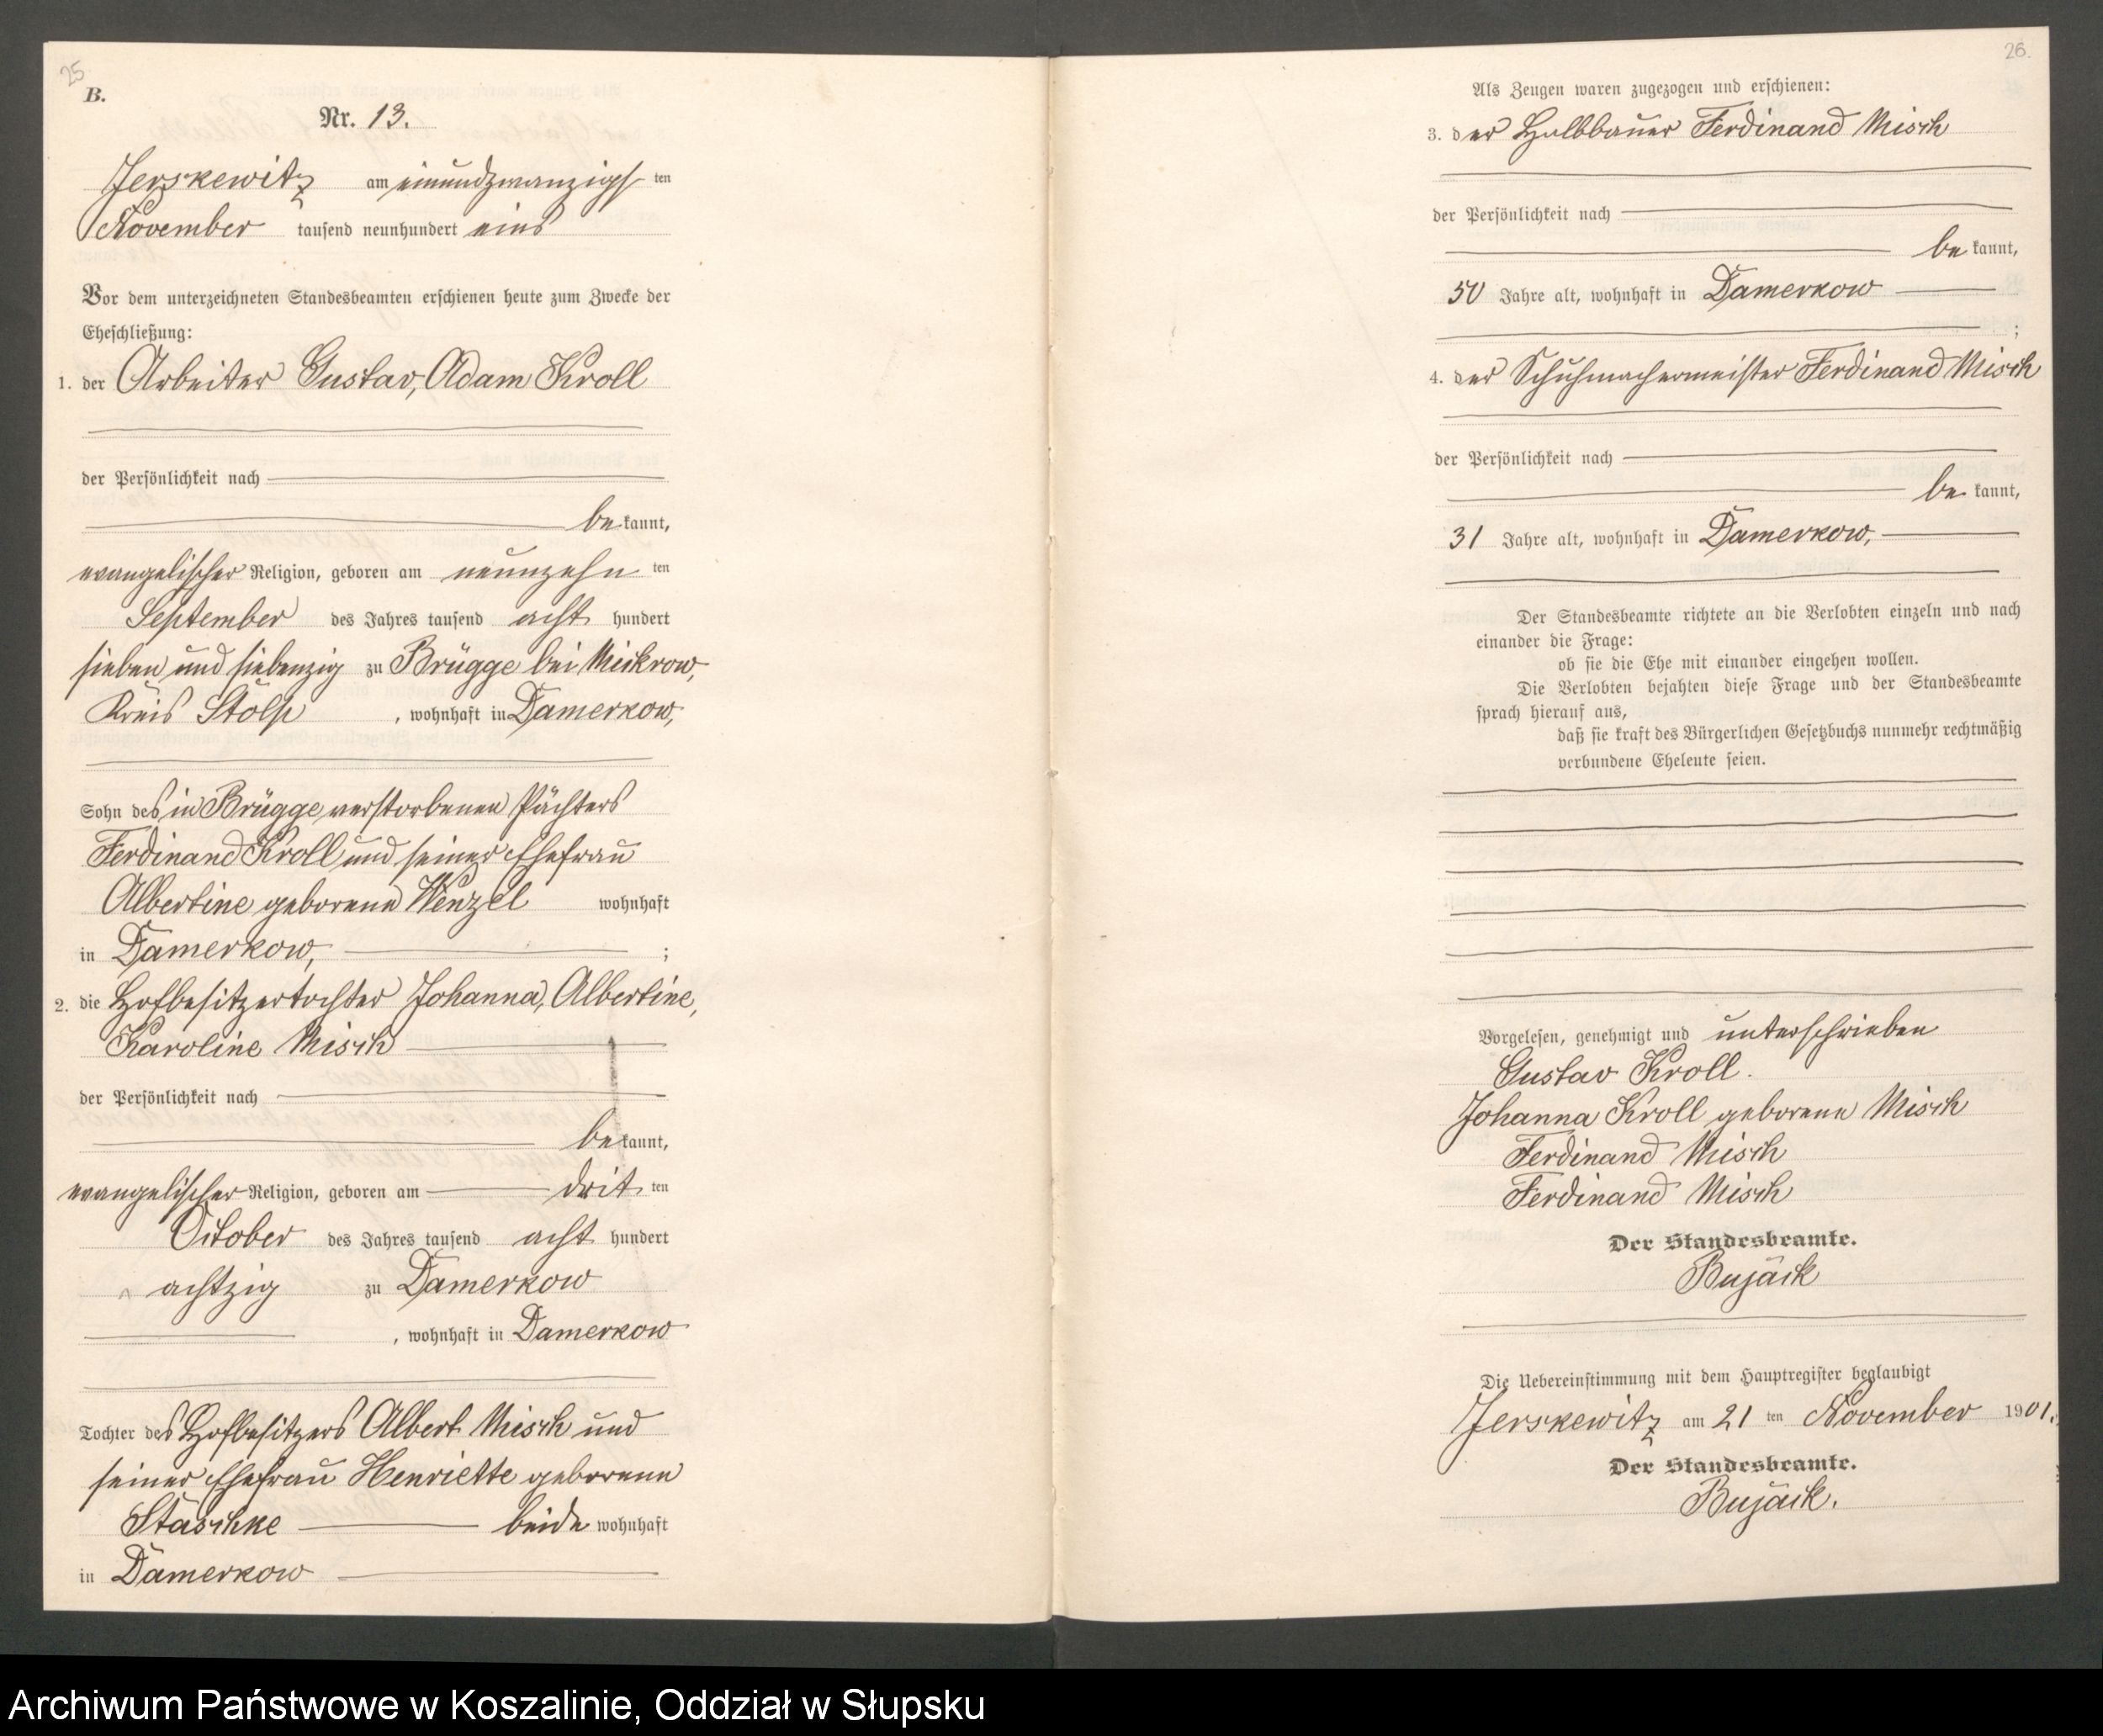 25
B.
Nr. 13.
Jerskewitz am einundzwanzigsten
November tausend neunhundert eins
Vor dem unterzeichneten Standesbeamten erschienen heute zum Zwecke der
Eheschließung:
1. der Arbeiter Gustav, Adam Kroll
der Persönlichkeit nach
bekannt,
evangelischer Religion, geboren am neunzehnten
September des Jahres tausend acht hundert
sieben und siebenzig zu Brügge bei Mickrow,
Kreis Stolp, wohnhaft in Damerkow,
Sohn des in Brügge verstorbenen Pächters
Ferdinand Kroll und seiner Ehefrau
Albertine geborene Wenzel wohnhaft
in Damerkow, ;
2. die Hofbesitzertochter Johanna, Albertine,
Karoline Misch
der Persönlichkeit nach
bekannt,
evangelischer Religion, geboren am dritten
October des Jahres tausend acht hundert
achtzig zu Damerkow
, wohnhaft in Damerkow
Tochter des Hofbesitzers Albert Misch und
seiner Ehefrau Henriette geborene
Staschke beide wohnhaft
in Damerkow
26.
Als Zeugen waren zugezogen und erschienen:
3. der Halbbauer Ferdinand Misch
der Persönlichkeit nach
bekannt,
50 Jahre alt, wohnhaft in Damerkow
;
4. der Schuhmachermeister Ferdinand Misch
der Persönlichkeit nach
bekannt,
31 Jahre alt, wohnhaft in Damerkow,
Der Standesbeamte richtete an die Verlobten einzeln und nach
einander die Frage:
ob sie die Ehe mit einander eingehen wollen.
Die Verlobten bejahten diese Frage und der Standesbeamte
sprach hierauf aus,
daß sie kraft des Bürgerlichen Gesetzbuchs nunmehr rechtmäßig
verbundene Eheleute seien.
Vorgelesen, genehmigt und unterschrieben
Gustav Kroll.
Johanna Kroll geborene Misch
Ferdinand Misch
Ferdinand Misch
Der Standesbeamte.
Bujack
Die Uebereinstimmung mit dem Hauptregister beglaubigt
Jerskewitz am 21 ten November 1901.
Der Standesbeamte.
Bujack.
Archiwum Państwowe w Koszalinie, Oddział w Słupsku